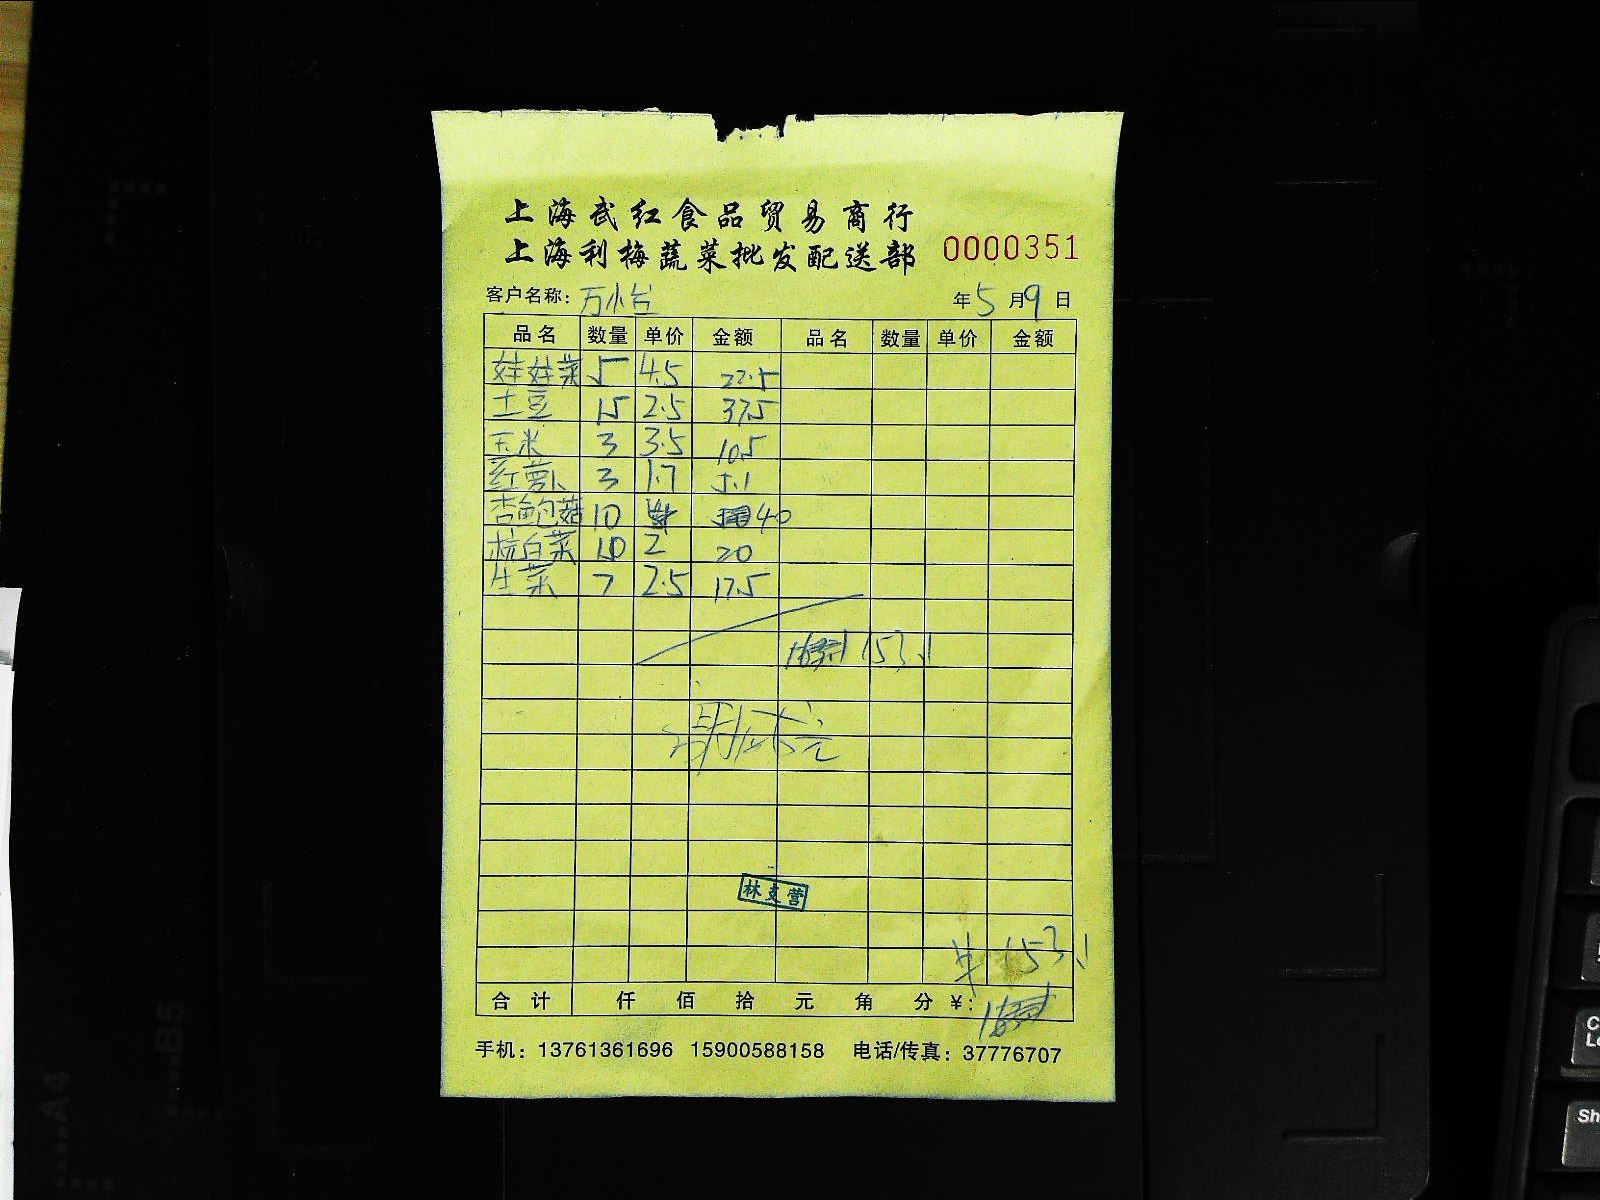 上海武红食品贸易商行
上海利梅蔬菜批发配送部 0000351
客户名称: 万怡 年5月9日
品名 数量 单价 金额 品名 数量 单价 金额
娃娃菜 5 4.5 22.5
土豆 15 2.5 37.5
玉米 3 3.5 10.5
红萝卜 3 1.7 5.1
杏鲍菇 10 40
杭白菜 10 2 20
生菜 7 2.5 17.5
153.1
153.1
合计 仟 佰 拾 元 角 分 ¥:
手机: 13761361696 15900588158 电话/传真: 37776707
A4
B5